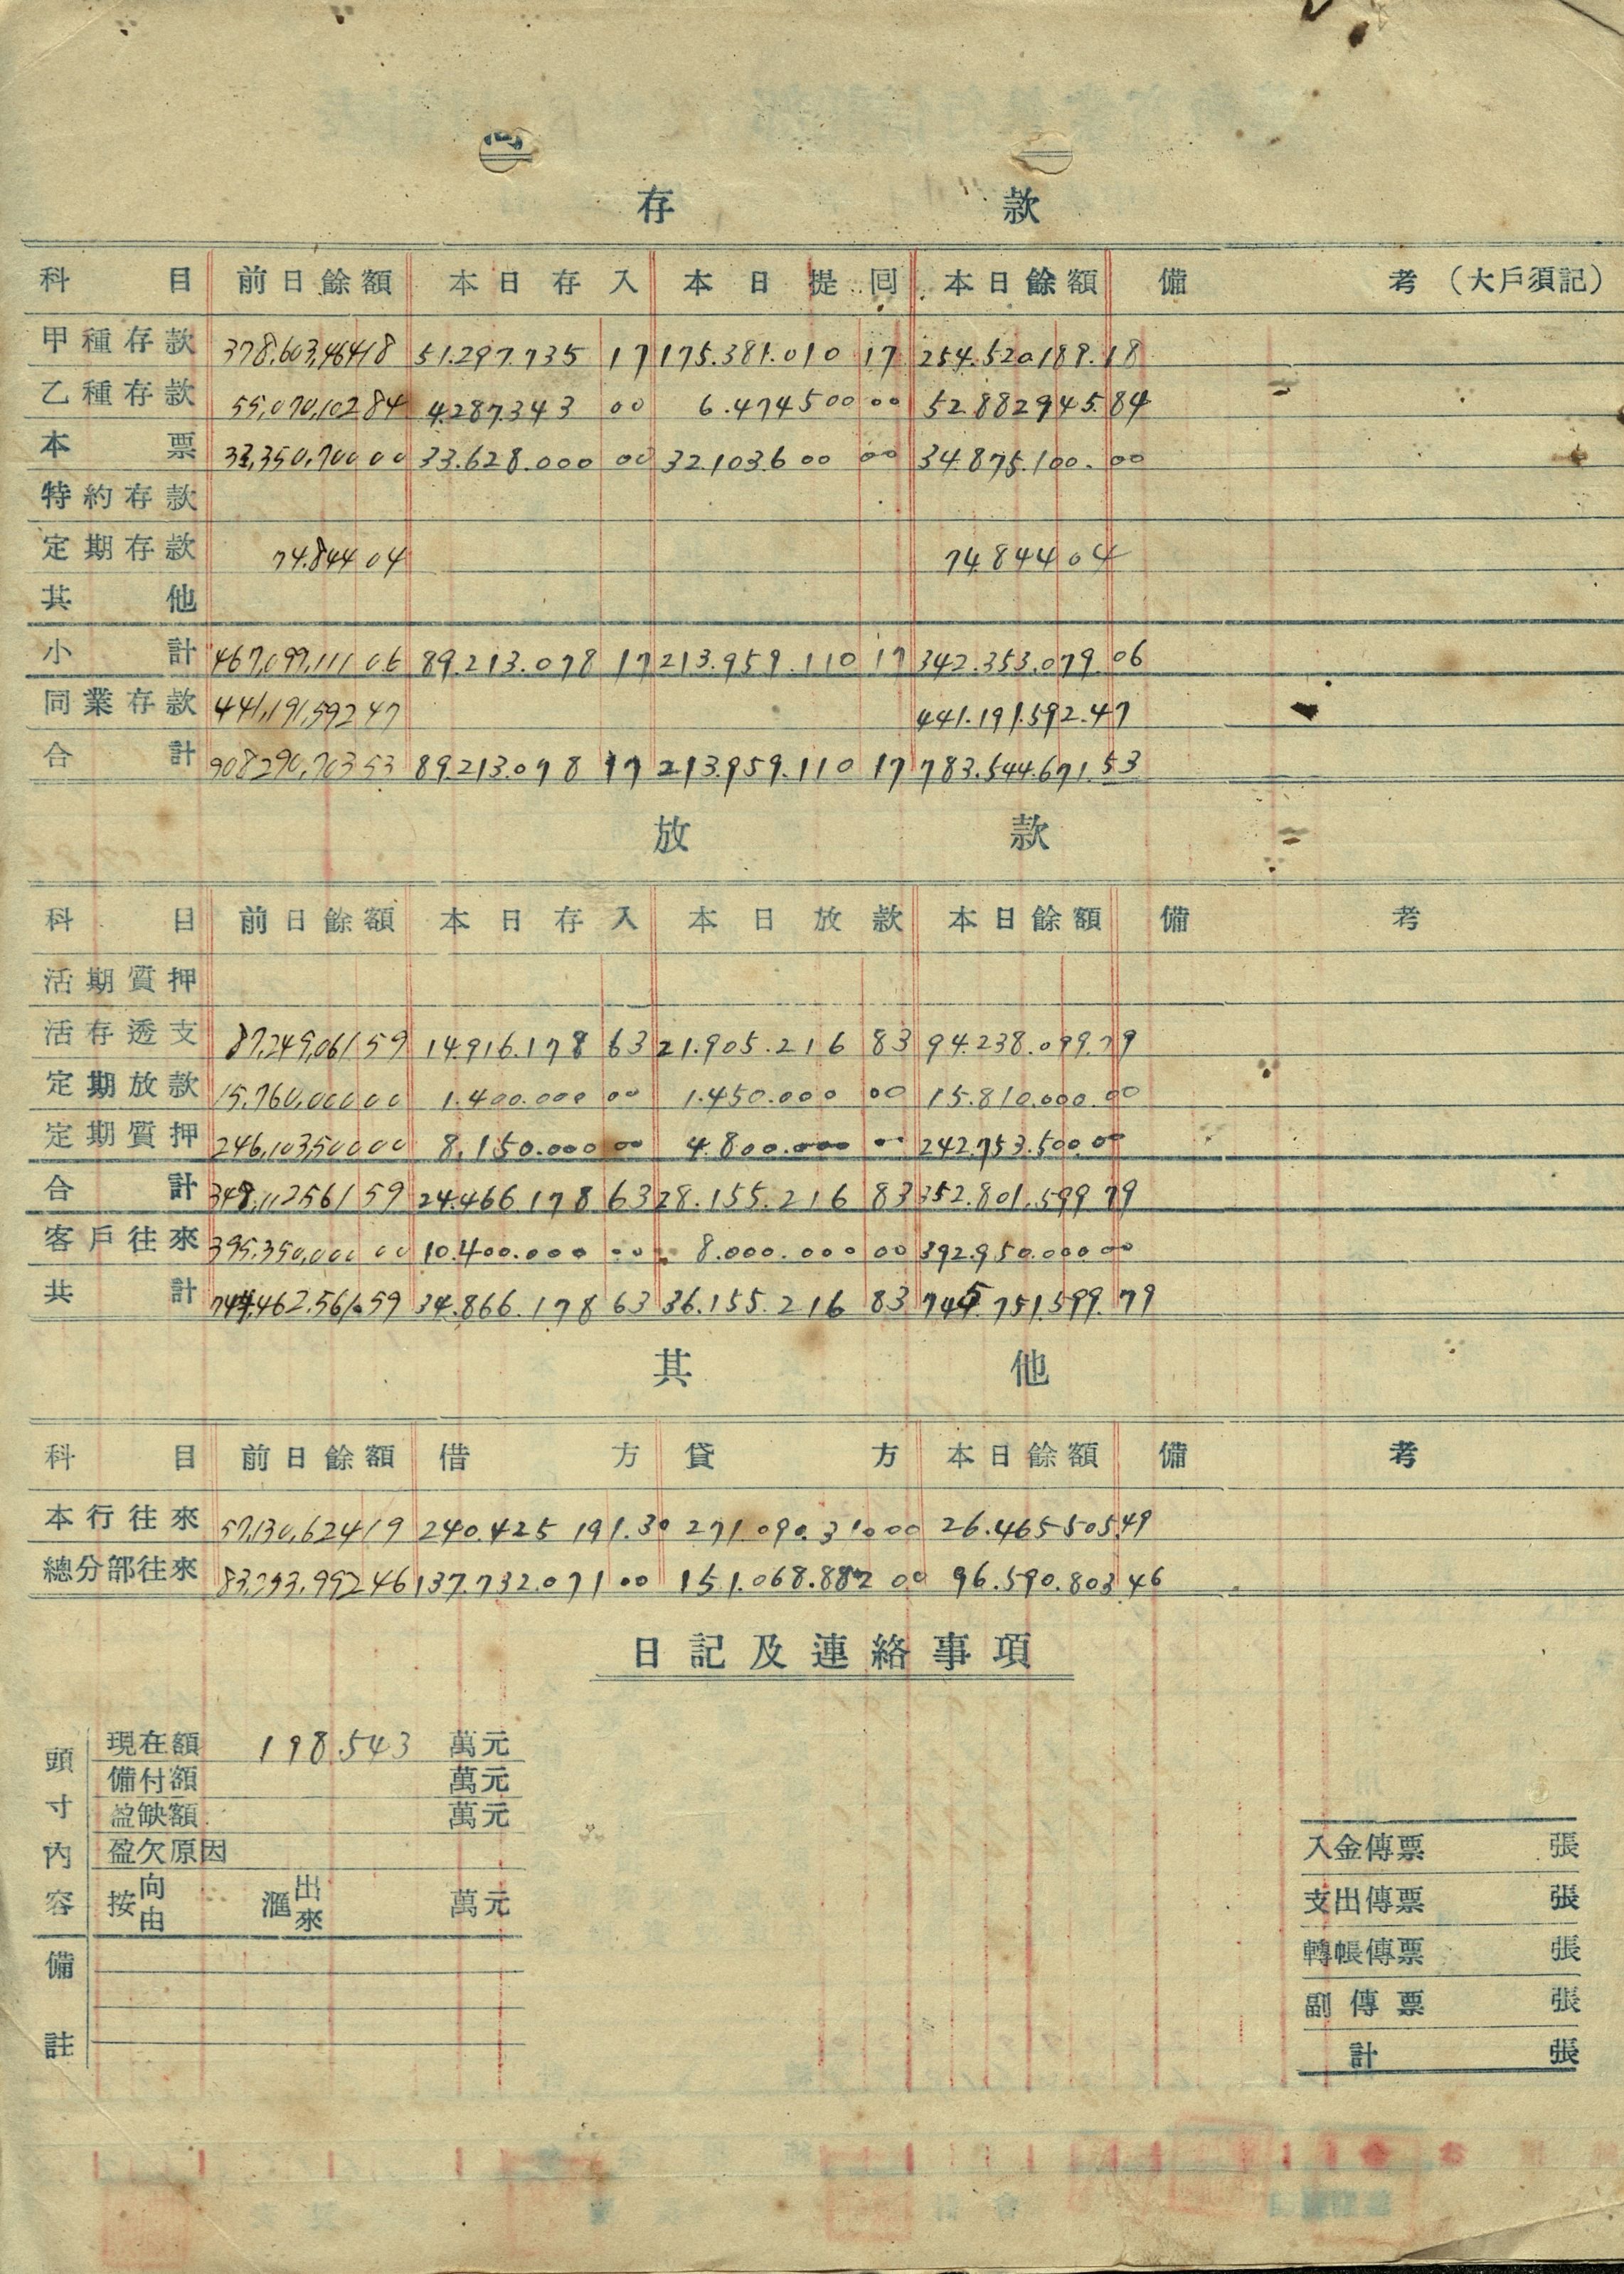 存款
科目 前日餘額 本日存入 本日提回 本日餘額 備考（大戶須記）
甲種存款 378,603,464 18 51.297.735 17 175.381.010 17 254.520.189.18
乙種存款 55,070,102 84 4.287.343 00 6.474500 00 52.882945.84
本票 33,350,700 00 33.628.000 00 32.103600 00 34.875.100.00
特約存款
定期存款 74.844 04 74.844 04
其他
小計 467,099,111 06 89.213.078 17 213.959.110 17 342.353.079.06
同業存款 441,191,592 47 441.191.592.47
合計 908290,703 53 89.213.078 17 213.959.110 17 783.544.671.53
放款
科目 前日餘額 本日存入 本日放款 本日餘額 備考
活期質押
活存透支 87,249,061 59 14.916.178 63 21.905.216 83 94.238.099.79
定期放款 15,760,000 00 1.400.000 00 1.450.000 00 15.810.000.00
定期質押 246,103,500 00 8.150.000 00 4.800.000 00 242.753.500.00
合計 349,112561 59 24.466178 63 28.155.216 83 352.801.599 79
客戶往來 395,350,000 00 10.400.000 00 8.000.000 00 392.950.000.00
共計 744,462,561.59 34.866.178 63 36.155.216 83 745.751.599.79
其他
科目 前日餘額 借方 貸方 本日餘額 備考
本行往來 57,130,624 19 240.425 191.30 271.090.310.00 26.465505.49
總分部往來 83,253,992 46 137.732.071 00 151.068.882 00 96.590.803 46
日記及連絡事項
頭寸內容
現在額 198.543 萬元
備付額 萬元
盈缺額 萬元
盈欠原因
按向由 滙出來 萬元
備註
入金傳票 張
支出傳票 張
轉帳傳票 張
副傳票 張
計 張